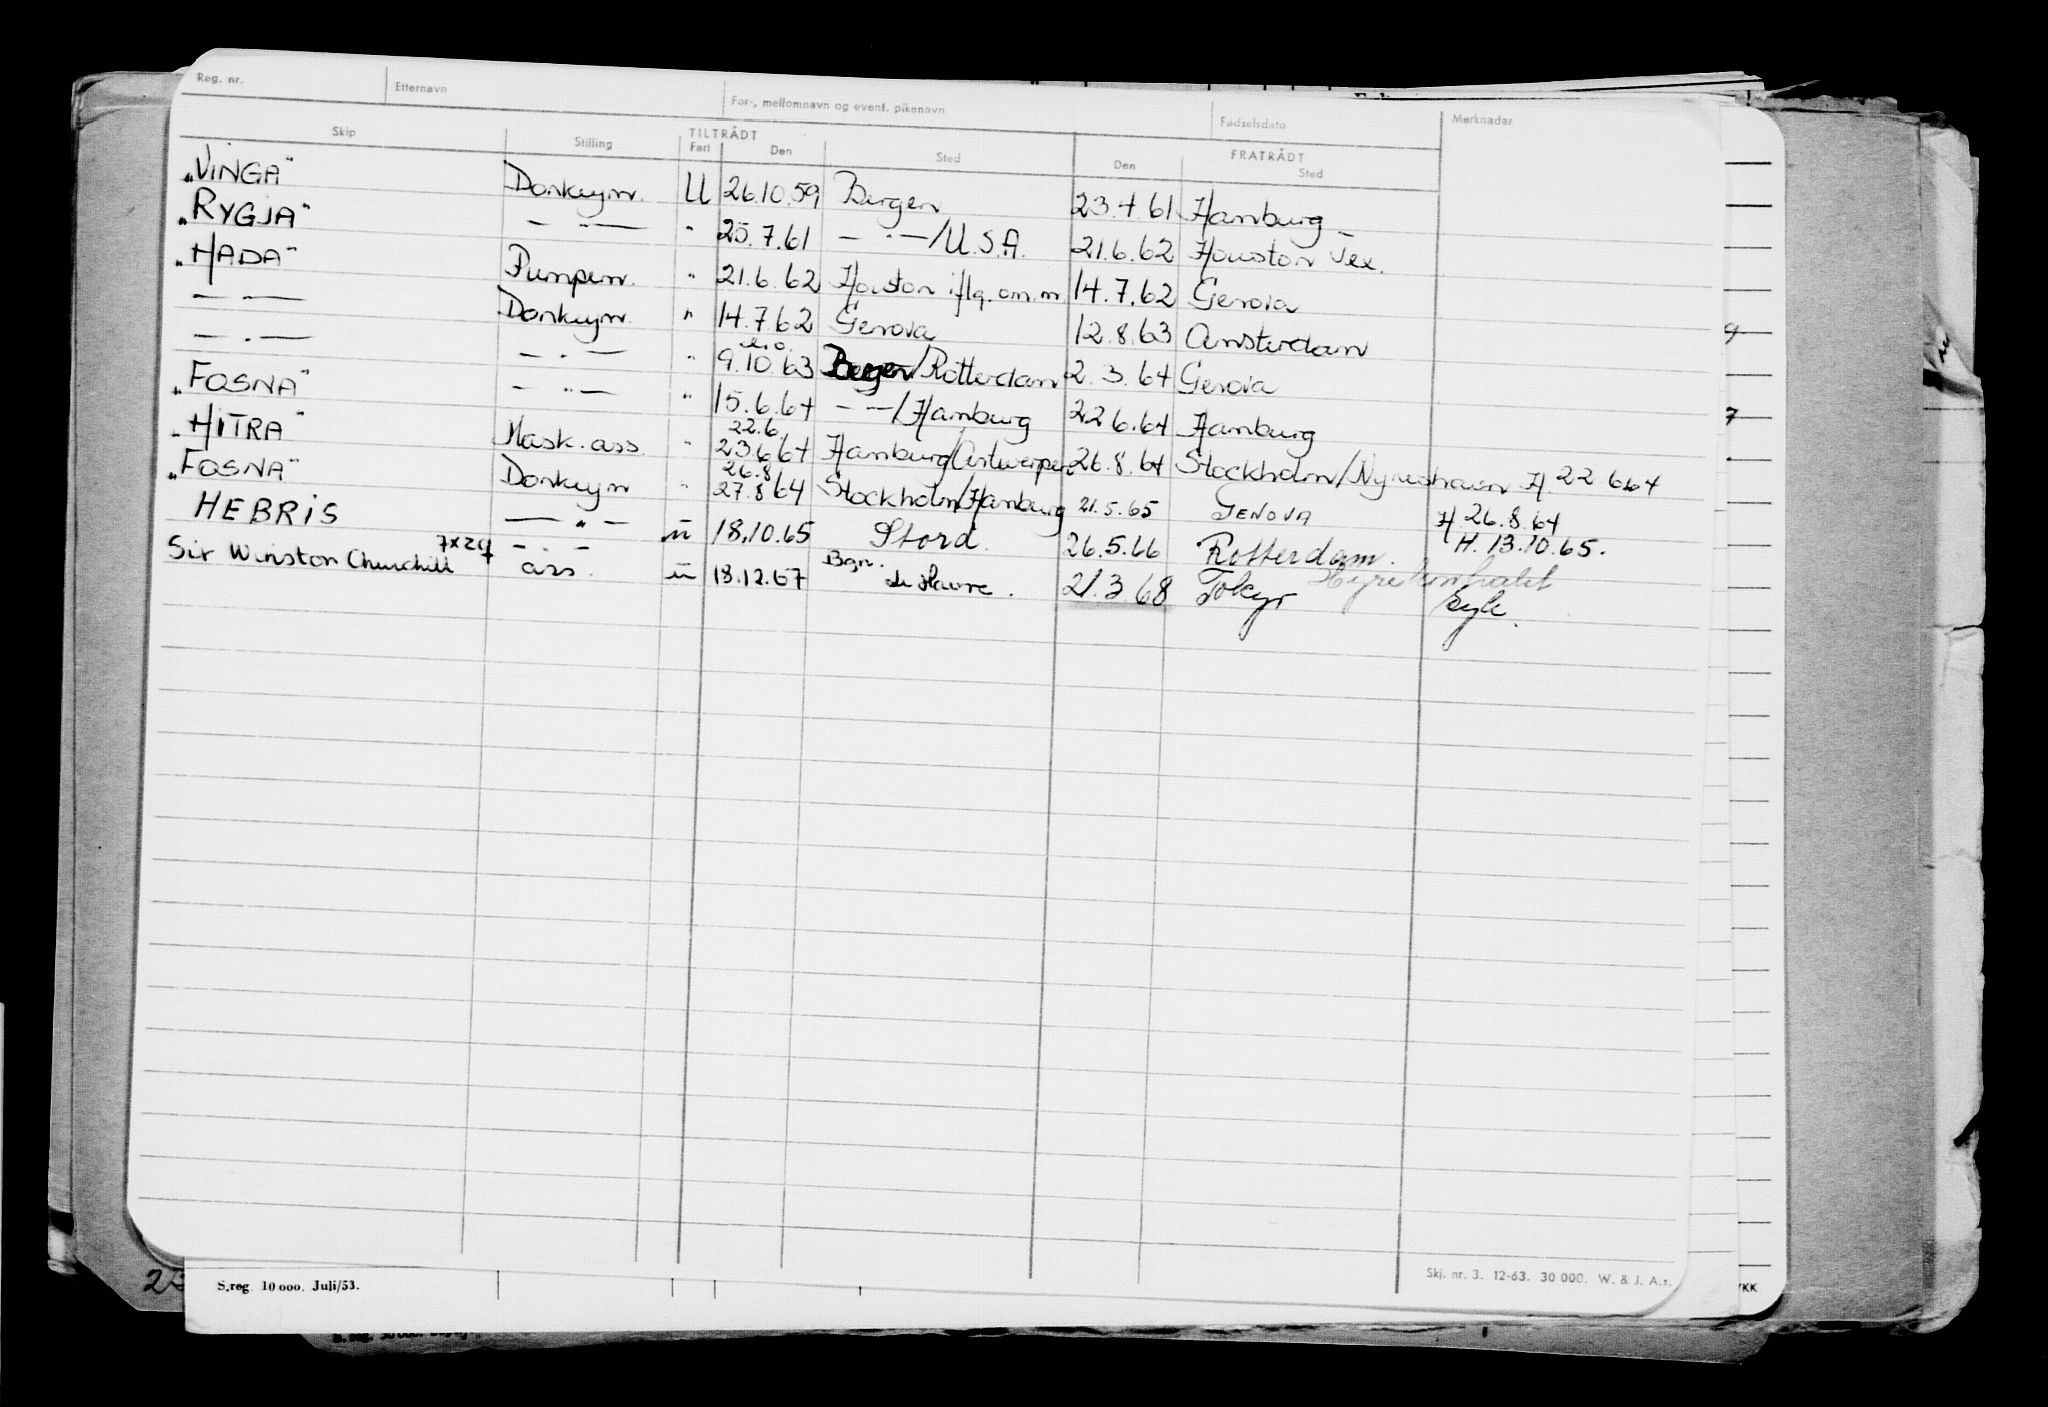 Reg. nr. Etternavn For-, mellomnavn og event. pikenavn Fødselsdato Merknader
TILTRÅDT FRATRÅDT
Skip Stilling Fart Den Sted Den Sted
"VINGA" Donkeym. U 26.10.59 Bergen 23.4.61 Hamburg
"RYGJA" — " — " 25.7.61 — " — /U.S.A. 21.6.62 Houston Tex.
"HADA" Pumpem. " 21.6.62 Houston iflg. om.m 14.7.62 Genova
— " — Donkeym. " 14.7.62 Genova 12.8.63 Amsterdam
— " — — " — " 9.10.63 Bergen/Rotterdam 2.3.64 Genova
"FOSNA" — " — " 15.6.64 — " — /Hamburg 22.6.64 Hamburg
22.6.
"HITRA" Mask.ass. " 23.6.64 Hamburg/Antwerpen 26.8.64 Stockholm/Nyneshavn H. 22.6.64
26.8
"FOSNA" Donkeym " 27.8.64 Stockholm/Hamburg 21.5.65 GENOVA H. 26.8.64
HEBRIS — " — u 18.10.65 Stord. 26.5.66 Rotterdam. H. 13.10.65.
7x24
Sir Winston Churchill — " — ass. u 18.12.67 Bgn. Le Havre. 21.3.68 Tokyo Hyrekontrakt Syk.
Skj. nr. 3. 12-63. 30 000. W. & J. A.s.
S.reg. 10 000. Juli/53.